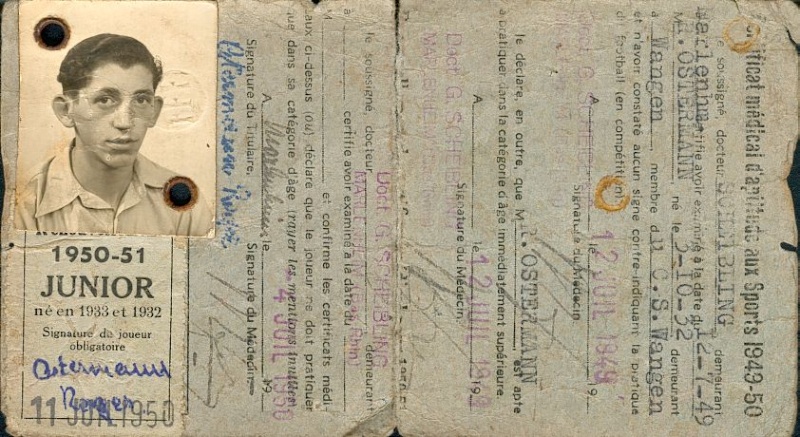 1950-51
JUNIOR
né en 1933 et 1932
Signature du joueur
obligatoire
Ostermann
Roger
11 JUIL 1950
Certificat médical d'aptitude aux Sports 1949-50
Je soussigné, docteur SCHEIBLING demeurant
Marlenheim certifie avoir examiné à la date du 12-7-49
M. OSTERMANN né le 3-10-32 demeurant
à Wangen membre du C.S. Wangen
et n'avoir constaté aucun signe contre-indiquant la pratique
du football (en compétition).
A le 12 JUIL 1949 19
Doct. G. SCHEIBLING
Signature du Médecin
Je déclare, en outre, que M. R. OSTERMANN, est apte
à pratiquer dans la catégorie d'âge immédiatement supérieure.
A le 12 JUIL 19
Signature du Médecin
Doct. G. SCHEIBLING
MARLENHEIM
Je soussigné, docteur Doct. G. SCHEIBLING demeurant
à MARLENHEIM (Bas-Rhin)
certifie avoir examiné à la date du
M. et confirme les certificats médi-
aux ci-dessus (ou) déclare que le joueur ne doit pratiquer
que dans sa catégorie d'âge (rayer les mentions inutiles)
A Marlenheim le 4 JUIL 1950 19
Signature du Titulaire, Signature du Médecin
Ostermann Roger